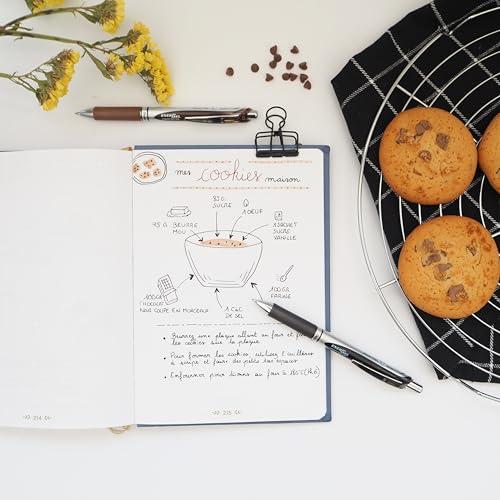 mes cookies maison
85 G.
SUCRE
1 OEUF
75 G. BEURRE
MOU
1 SACHET
SUCRE
VANILLE
100GR
CHOCOLAT
NOIR COUPÉ EN MORCEAUX
1 CàC
DE SEL
100GR
FARINE
Beurrez une plaque allant au four et
les cookies sur la plaque
Pour former les cookies utilisez 2 cuillères
à soupe et faire des petits tas espacés
Enfourner pour 10 mins au four à 180°C (th.6)
214
215